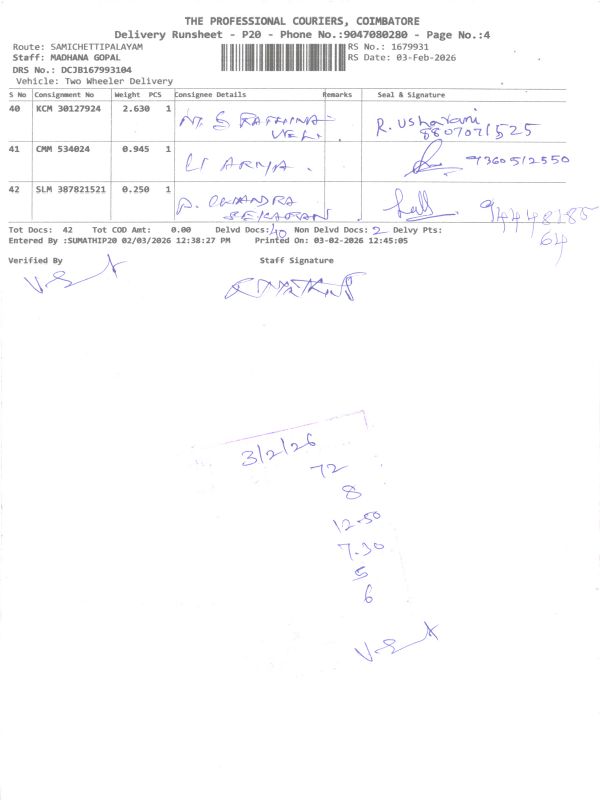 THE PROFESSIONAL COURIERS, COIMBATORE
Delivery Runsheet - P20 - Phone No.:9047080280 - Page No.:4
Route: SAMICHETTIPALAYAM
Staff: MADHANA GOPAL
DRS No.: DCJB167993104
Vehicle: Two Wheeler Delivery
RS No.: 1679931
RS Date: 03-Feb-2026
S No Consignment No Weight PCS Consignee Details Remarks Seal & Signature
40 KCM 30127924 2.630 1 RATHINA R. Usharani
VEL. 8807071525
41 CMM 534024 0.945 1 9360512550
42 SLM 387821521 0.250 1 P. CHANDRA
SEKARAN 94448185
64
Tot Docs: 42 Tot COD Amt: 0.00 Delvd Docs: 40 Non Delvd Docs: 2 Delvy Pts:
Entered By :SUMATHIP20 02/03/2026 12:38:27 PM Printed On: 03-02-2026 12:45:05
Verified By Staff Signature
3/2/26
72
8
12.50
7.30
5
6